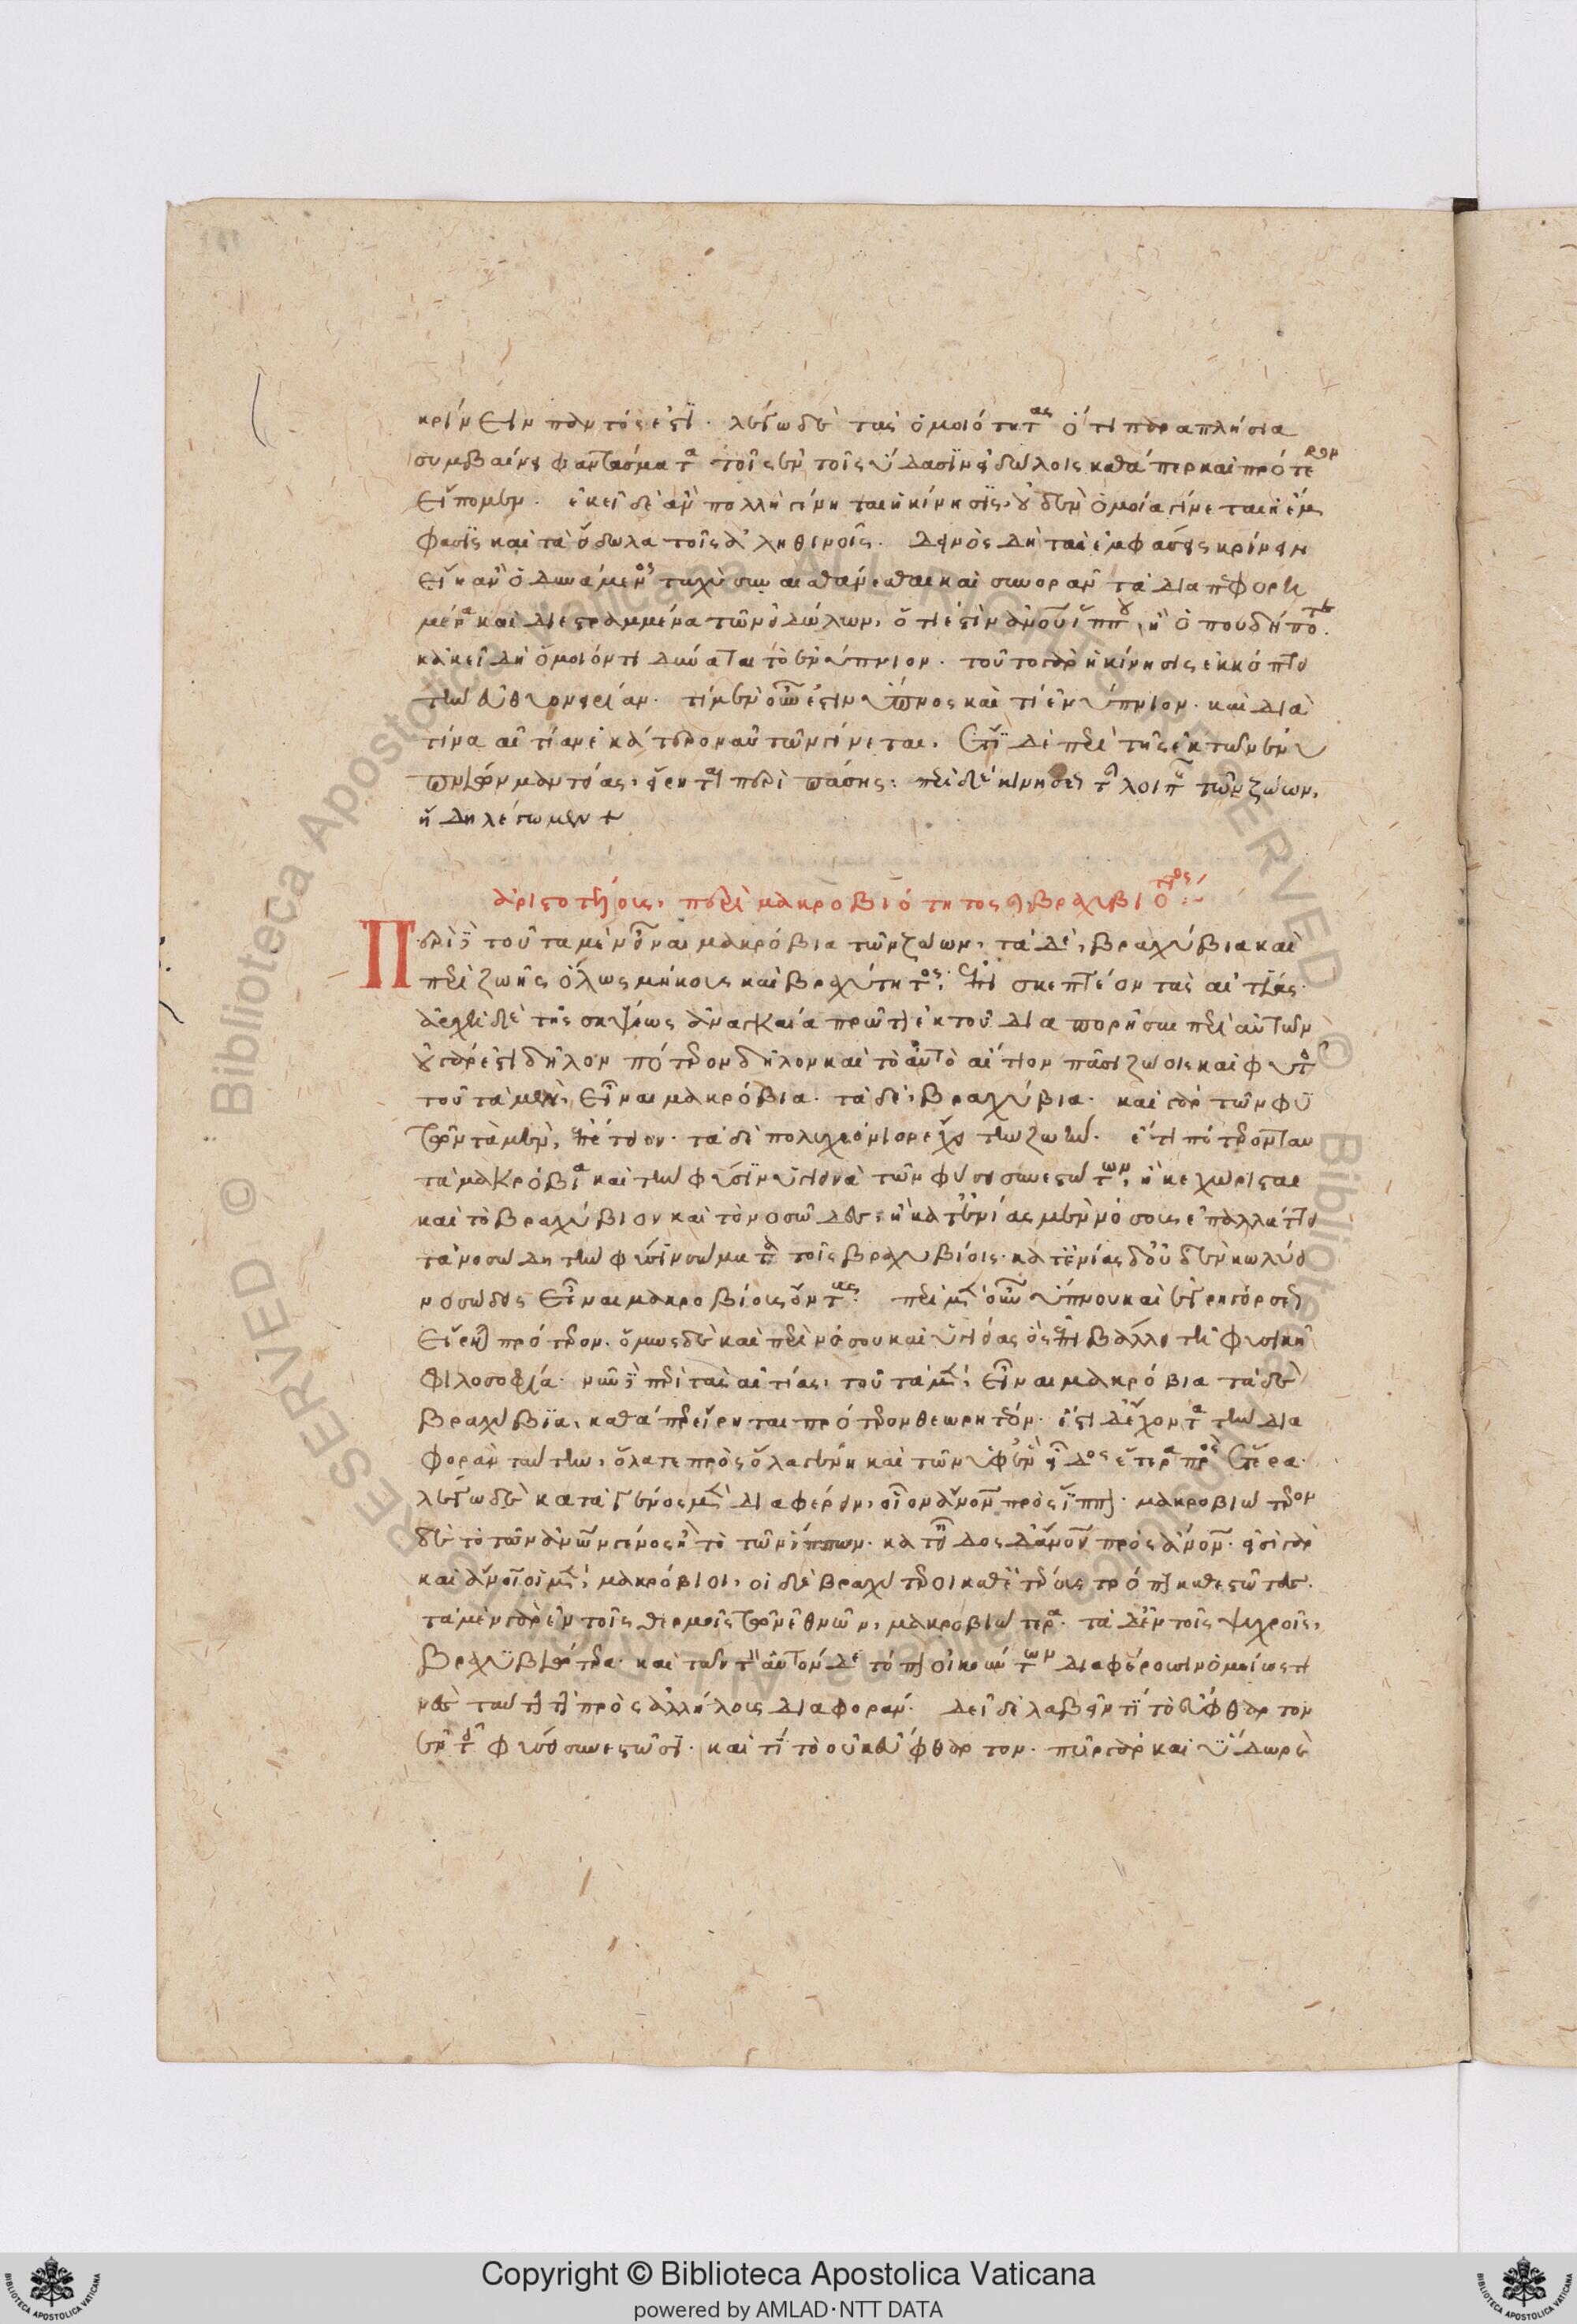 κρίνειν παντός ἐστϊ. λέγω δὲ τὰς ὁμοιότητας ὅτι παραπλήσια
συμβαίνει φαντάσματα τοῖς ἐν τοῖς ὕδασϊν εἰδώλοις καθάπερ καὶ πρότερον
εἴπομεν. ἐκεῖ δὲ ἂν πολλὴ γίνηται ἡ κίνησϊς, οὐδὲν ὁμοία γίνεται ἡ ἔμ
φασϊς καὶ τὰ εἴδωλα τοῖς ἀληθινοῖς. δεινὸς δὴ τὰς ἐμφάσεις κρίνειν
εἴη ἂν ὁ δυνάμενος ταχὺ συναισθάνεσθαι καὶ συνορᾶν τὰ διαπεφορη
μένα καὶ διεστραμμένα τῶν εἰδώλων, ὅτι ἐστὶν ἀνου ἢ ἵππου, ἢ ὁπουδήποτε.
κἀκεῖ δὴ ὅμοιόν τι δύναται τὸ ἐνύπνιον. τοῦτο γὰρ ἡ κίνησις ἐκκόπτει
τὴν εὐθυονειρίαν. τί μὲν οὖν ἐστιν ὕπνος καὶ τί ἐνύπνιον. καὶ διὰ
τίνα αἰτίαν ἑκάτερον αὐτῶν γίνεται. ἔτϊ δὲ περὶ τῆς ἐκ τῶν ἐνυ
πνίων μαντείας, εἴρηται περὶ πάσης: περὶ δὲ κινήσεως τῆς λοιπῆς τῶν ζώων,
ἤδη λέγωμεν +
ἀριστοτέλους, περὶ μακροβιότητος καὶ βραχυβιότητος:
Περὶ τοῦ τὰ μὲν εἶναι μακρόβια τῶν ζώων, τὰ δὲ, βραχύβια καὶ
περὶ ζωῆς ὅλως μήκους καὶ βραχύτητος, ἐπισκεπτέον τὰς αἰτίας.
ἀρχὴ δὲ τῆς σκέψεως ἀναγκαία πρῶτον ἐκ τοῦ διαπορῆσαι περὶ αὐτῶν
οὐ γάρ ἐστι δῆλον πότερον δῆλον καὶ τὸ αὐτὸ αἴτιον πᾶσι ζώοις καὶ φυτοῖς
τοῦ τὰ μὲν, εἶναι μακρόβια. τὰ δὲ, βραχύβια. καὶ γὰρ τῶν φυ
τῶν τὰ μὲν, ἐπέτειον. τὰ δὲ πολυχρόνιον ἔχει τὴν ζωήν. ἔτι πότερον ταυ
τὰ μακρόβια καὶ τὴν φύσϊν ὑγιεινὰ τῶν φύσει συνεστώτων, ἢ κεχώρισται
καὶ τὸ βραχύβιον καὶ τὸ νοσῶδες, ἢ κατ' ἐνίας μὲν νόσους ἐπαλλάττει
τὰ νοσώδη τὴν φύσϊν σώματα τοῖς βραχυβίοις. κατ' ἐνίας δ' οὐδὲν κωλύει
νοσώδεις εἶναι μακροβίους ὄντας. περὶ μὲν οὖν ὕπνου καὶ ἐγρηγόρσεως
εἴρηται πρότερον. ὅμως δὲ καὶ περὶ νόσου καὶ ὑγιείας ὅσα ἐπιβάλλει τῇ φυσικῇ
φιλοσοφίᾳ. νῦν περὶ τὰς αἰτίας, τοῦ τὰ μὲν, εἶναι μακρόβια τὰ δὲ
βραχύβϊα, καθάπερ εἴρηται πρότερον θεωρητέον. ἔστι δ' ἔχοντα τὴν δια
φορὰν ταύτην, ὅλα τε πρὸς ὅλα γένη καὶ τῶν ὑφ' ἓν εἶδος ἕτερα πρὸς ἕτερα.
λέγω δὲ κατὰ γένος μὲν διαφέρειν, οἷον ἀνον πρὸς ἵππον. μακροβιώτερον
δὲ τὸ τῶν ἀνων γένος ἢ τὸ τῶν ἵππων. κατ' εἶδος δ' ἄνον πρὸς ἄνον. εἰσὶ γὰρ
καὶ ἄνοι οἱ μὲν, μακρόβιοι, οἱ δὲ βραχύτεροι καθ' ἑτέρους τόπους καθεστῶτες.
τὰ μὲν γὰρ ἐν τοῖς θερμοῖς τῶν ἐθνῶν, μακροβιώτερα. τὰ δ' ἐν τοῖς ψυχροῖς,
βραχυβιώτερα. καὶ τῶν τὸν αὐτὸν δὲ τόπον οἰκούντων διαφέρουσιν ὁμοίως τι
νὲς ταύτῃ τῇ πρὸς ἀλλήλους διαφοράν. δεῖ δὲ λαβεῖν τί τὸ εὔφθαρτον
ἐν τοῖς φύσει συνεστῶσϊ. καὶ τί τὸ οὐκ εὔφθαρτον. πῦρ γὰρ καὶ ὕδωρ καὶ
Copyright © Biblioteca Apostolica Vaticana
powered by AMLAD·NTT DATA